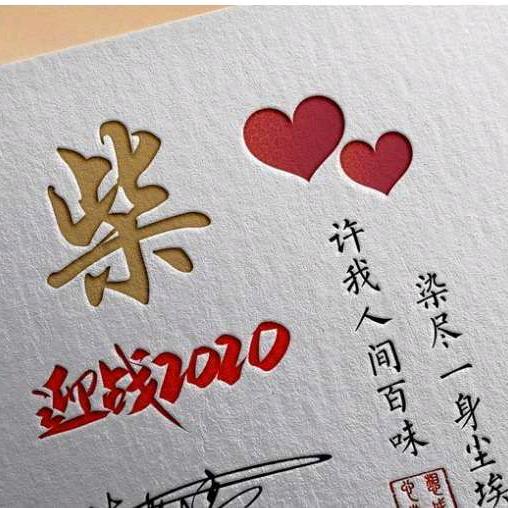 柴
迎战2020
染尽一身尘埃
许我人间百味